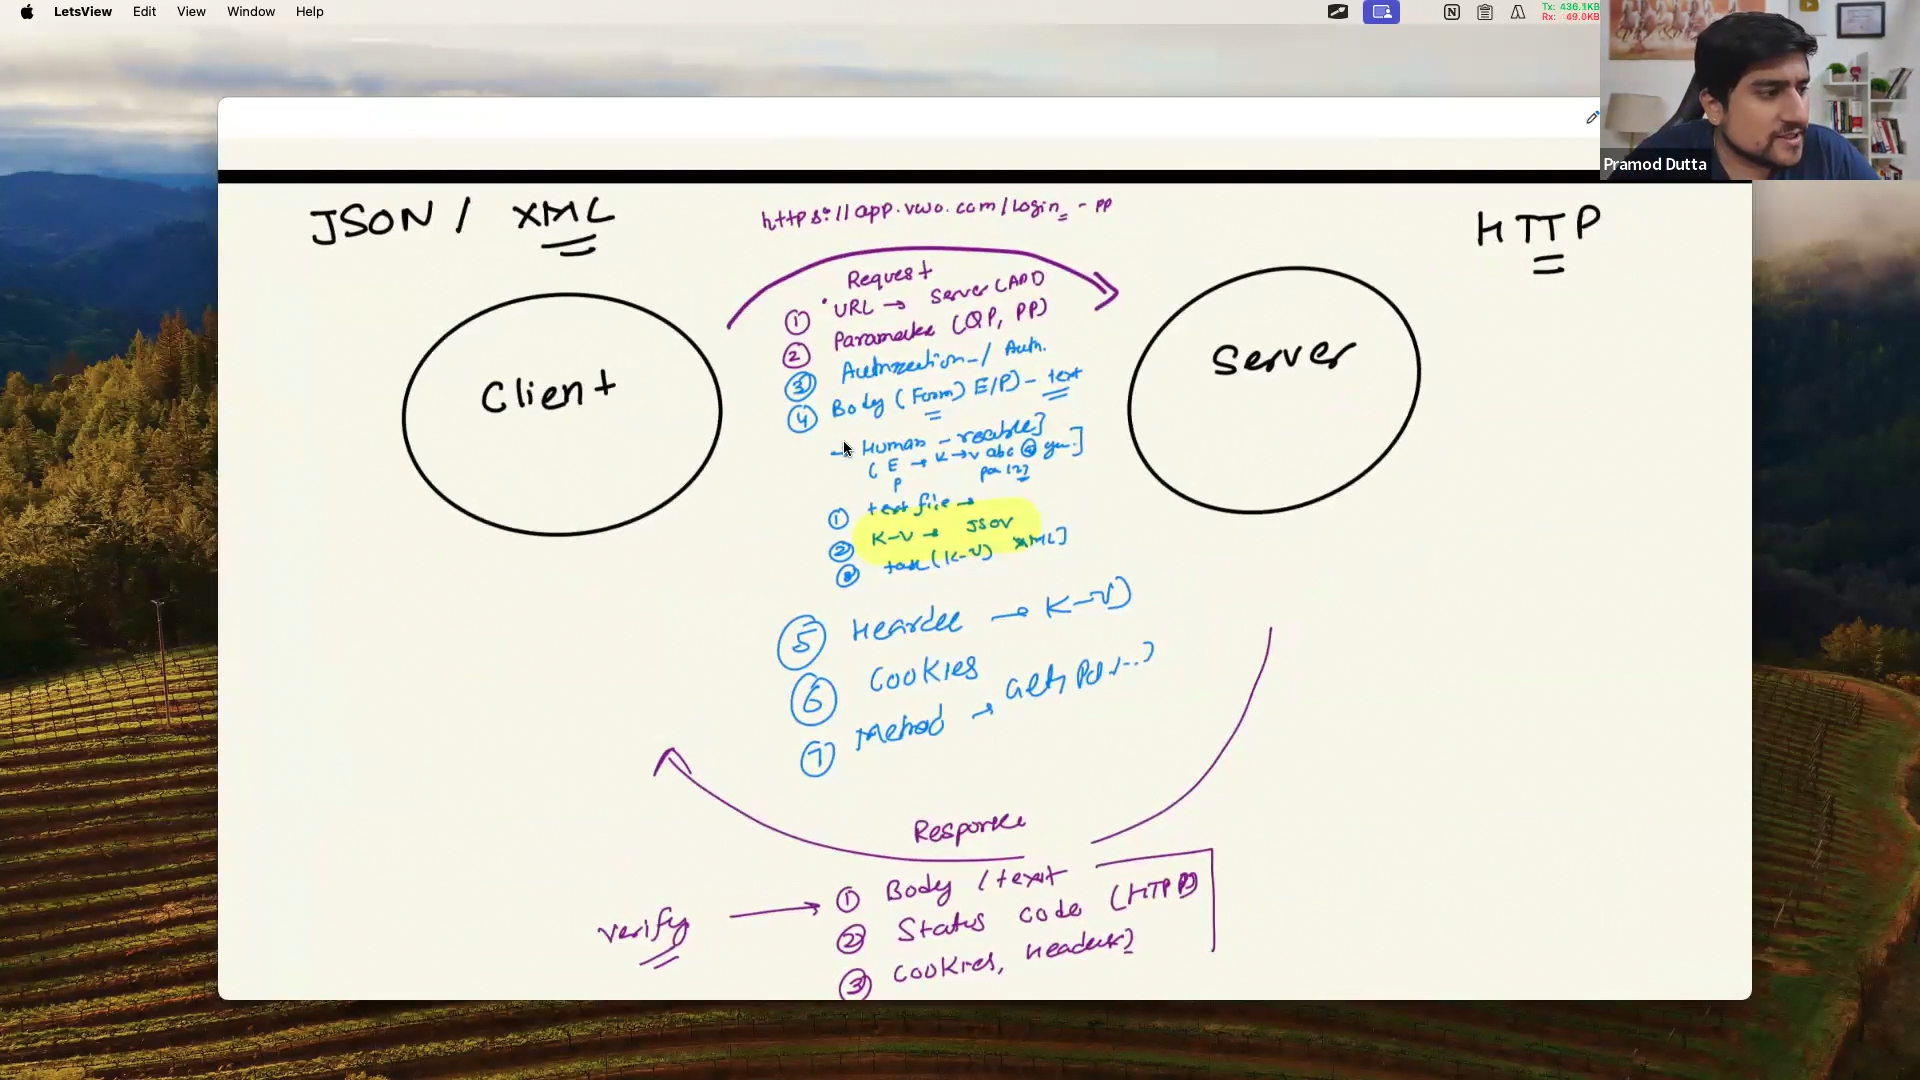 LetsView Edit View Window Help
Tx: 436.1KB
Rx: 49.0KB
Pramod Dutta
JSON / XML
https://app.vwo.com/login - PP
HTTP
Request
① URL → Server (API)
② Parameter (QP, PP)
③ / Auth.
④ Body (Form) E/P) - text
→ Human - readable]
( E → K→V abc @
P
① text file →
② K-V → JSON
③ (K-V) XML]
Client
Server
⑤ → K-V)
⑥ Cookies
⑦ Method →
Response
verify → ① Body / text
② Status code (HTTP)
③ Cookies, headers